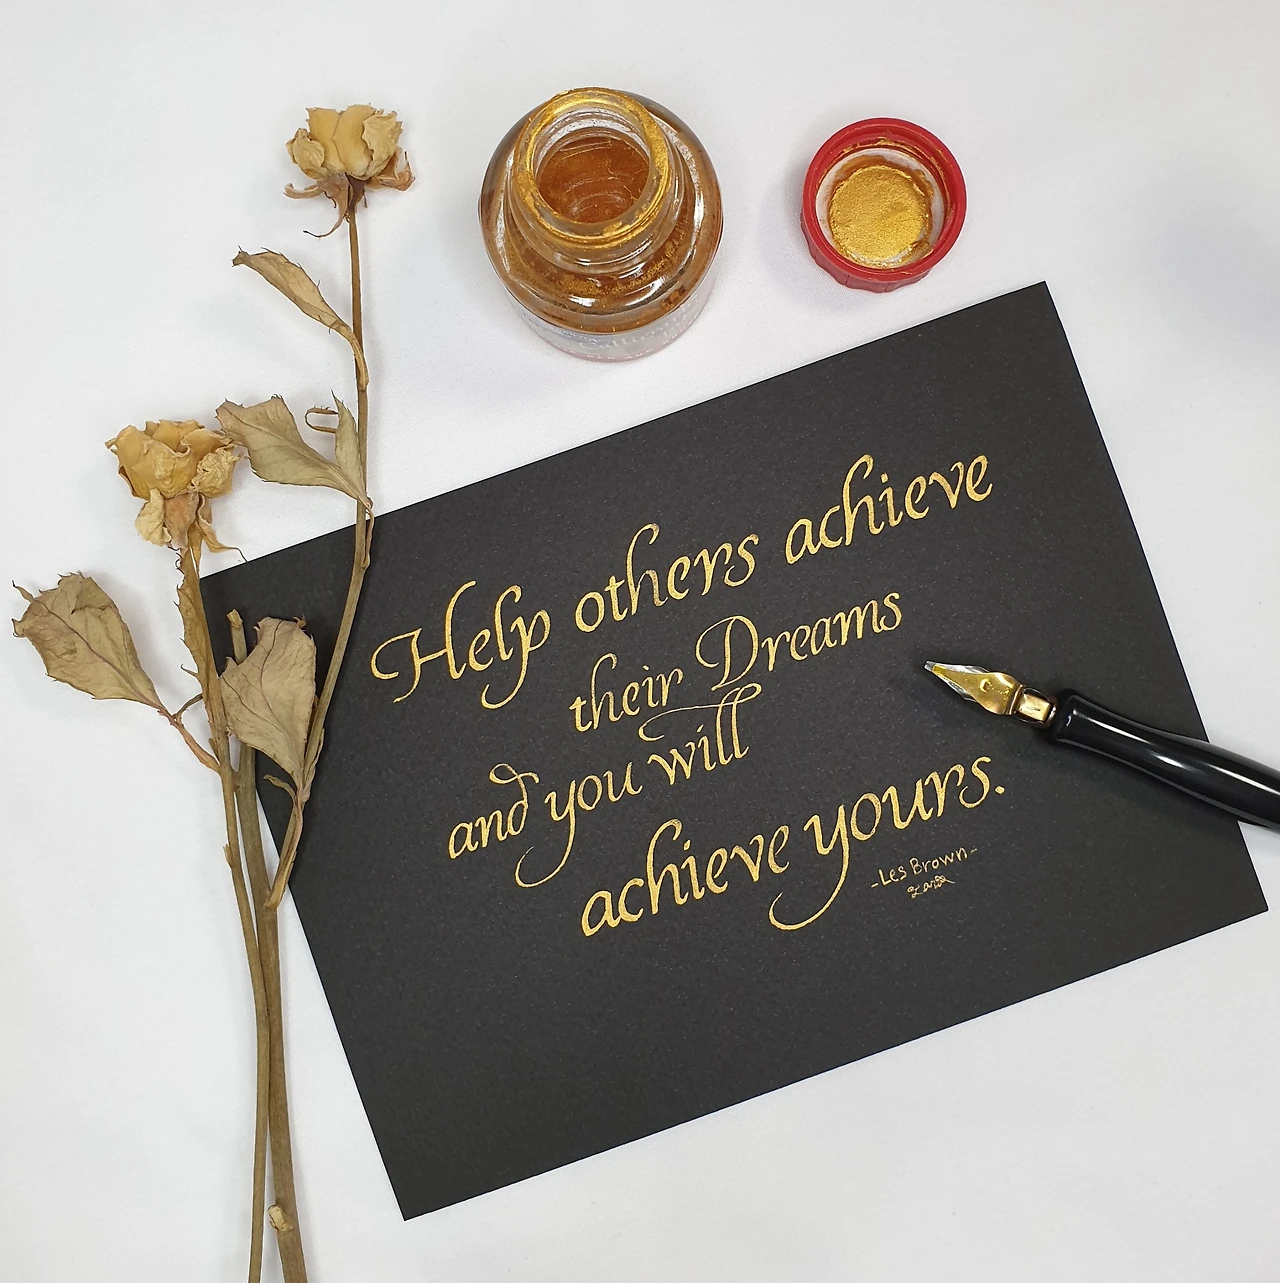 Help others achieve
their Dreams
and you will
achieve yours.
-Les Brown-